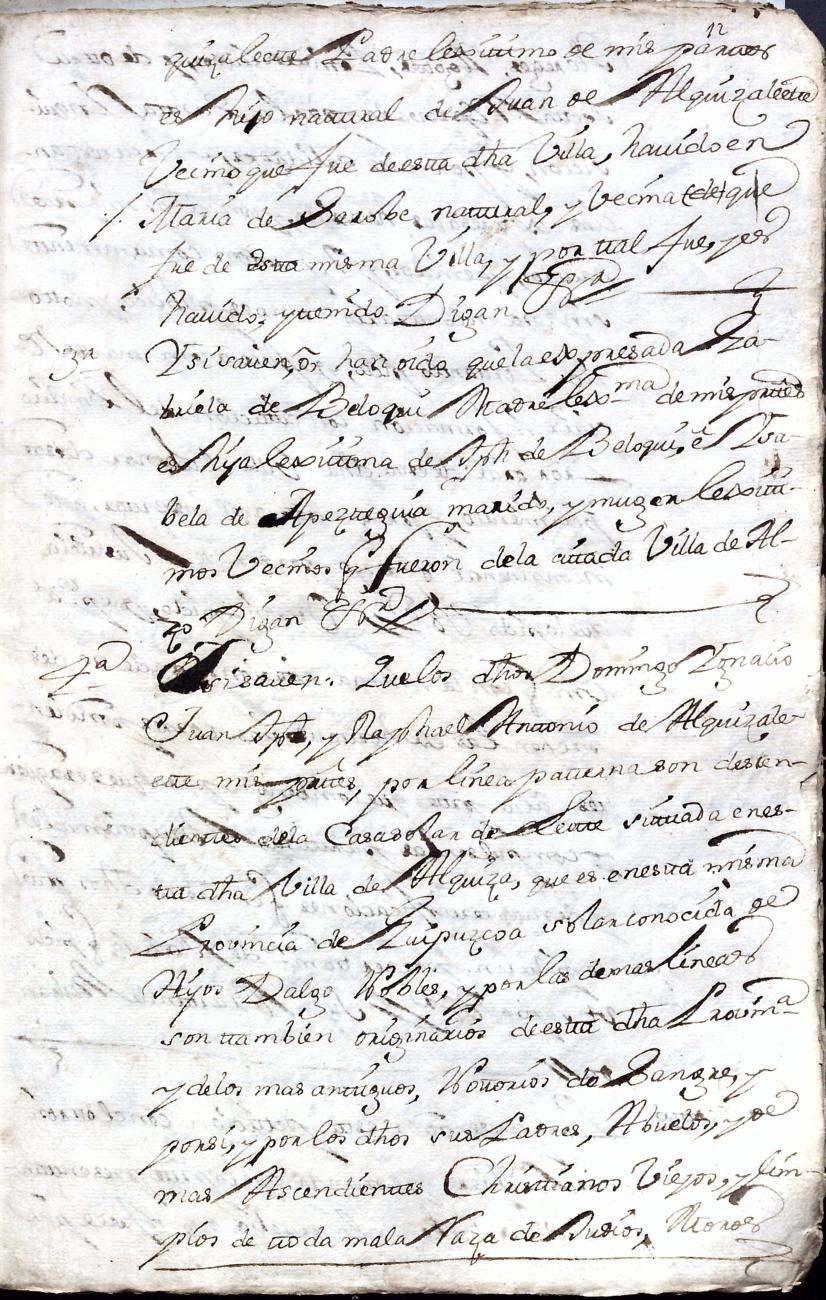 12
quizalette Padre lexittimo de mis parttes
es hijo natural de Juan de Alquizalette
Vecino que fue de esta dha Villa, havido en
Maria de Berobe natural, y Vecina (de) que
fue de esta misma Villa, y por tal fue, y es
havido, y tenido. Digan
3a Y si saven, o han oido que la expresada Ga-
briela de Beloqui Madre lexma de mis parttes
es hija lexittima de Jph de Beloqui, e Ysa-
bela de Apezteguia marido, y muger lexitti-
mos Vecinos q fueron de la cittada Villa de Al-
zo Digan
4a Y si saven. Que los dhos Domingo Ygnacio
Juan Jph, y Raphael Antonio de Alquizale-
tte mis parttes, por linea paterna son desçen-
dientes de la Casa solar de Lette situada en es-
ta dha Villa de Alquiza, que es en esta misma
Provincia de Guipuzcoa solar conocida de
Hijos Dalgo Nobles, y por las demas lineas
son ttambien originarios de esta dha Provina
y de los mas antiguos, Nottorios de Sangre, y
por si, y por los dhos sus Padres, Abuelos, y de
mas Ascendientes Christtianos Viejos, y lim-
pios de ttoda mala Raza de Judios, Moros